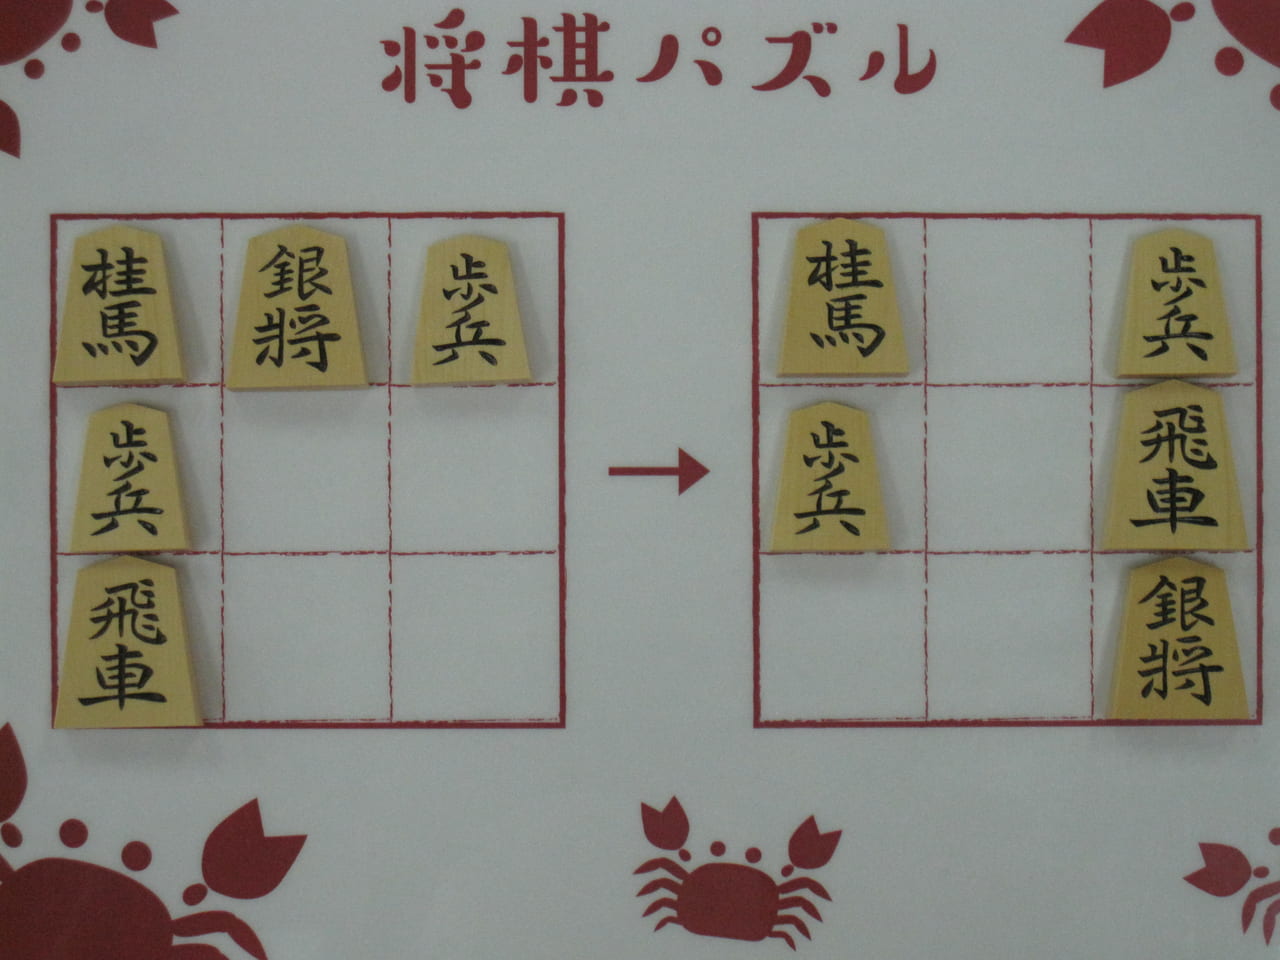 将棋パズル
桂馬 銀将 歩兵
歩兵
飛車
桂馬 歩兵
歩兵 飛車
銀将